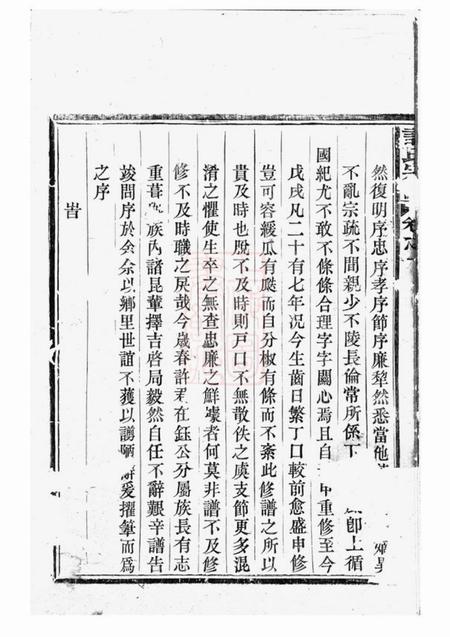 然復明序忠序孝序節序廉犂然悉當他
不亂宗疏不間親少不陵長倫常所係下
即上循
國紀尤不敢不條條合理字字關心焉且自
甲重修至今
戊戌凡二十有七年况今生齒日繁丁口較前愈盛申修
豈可容緩瓜有瓞而自分椒有條而不紊此修譜之所以
貴及時也脫不及時則戸口不無散佚之虞支節更多混
淆之懼使生卒之無查忠廉之鮮據者何莫非譜不及修
修不及時職之戾哉今歲春許君在鈺公分屬族長有志
重葺
族內諸昆輩擇吉啓局毅然自任不辭艱辛譜告
竣問序於余余以鄉里世誼不獲以謭陋辭爰擢筆而爲
之序
旹